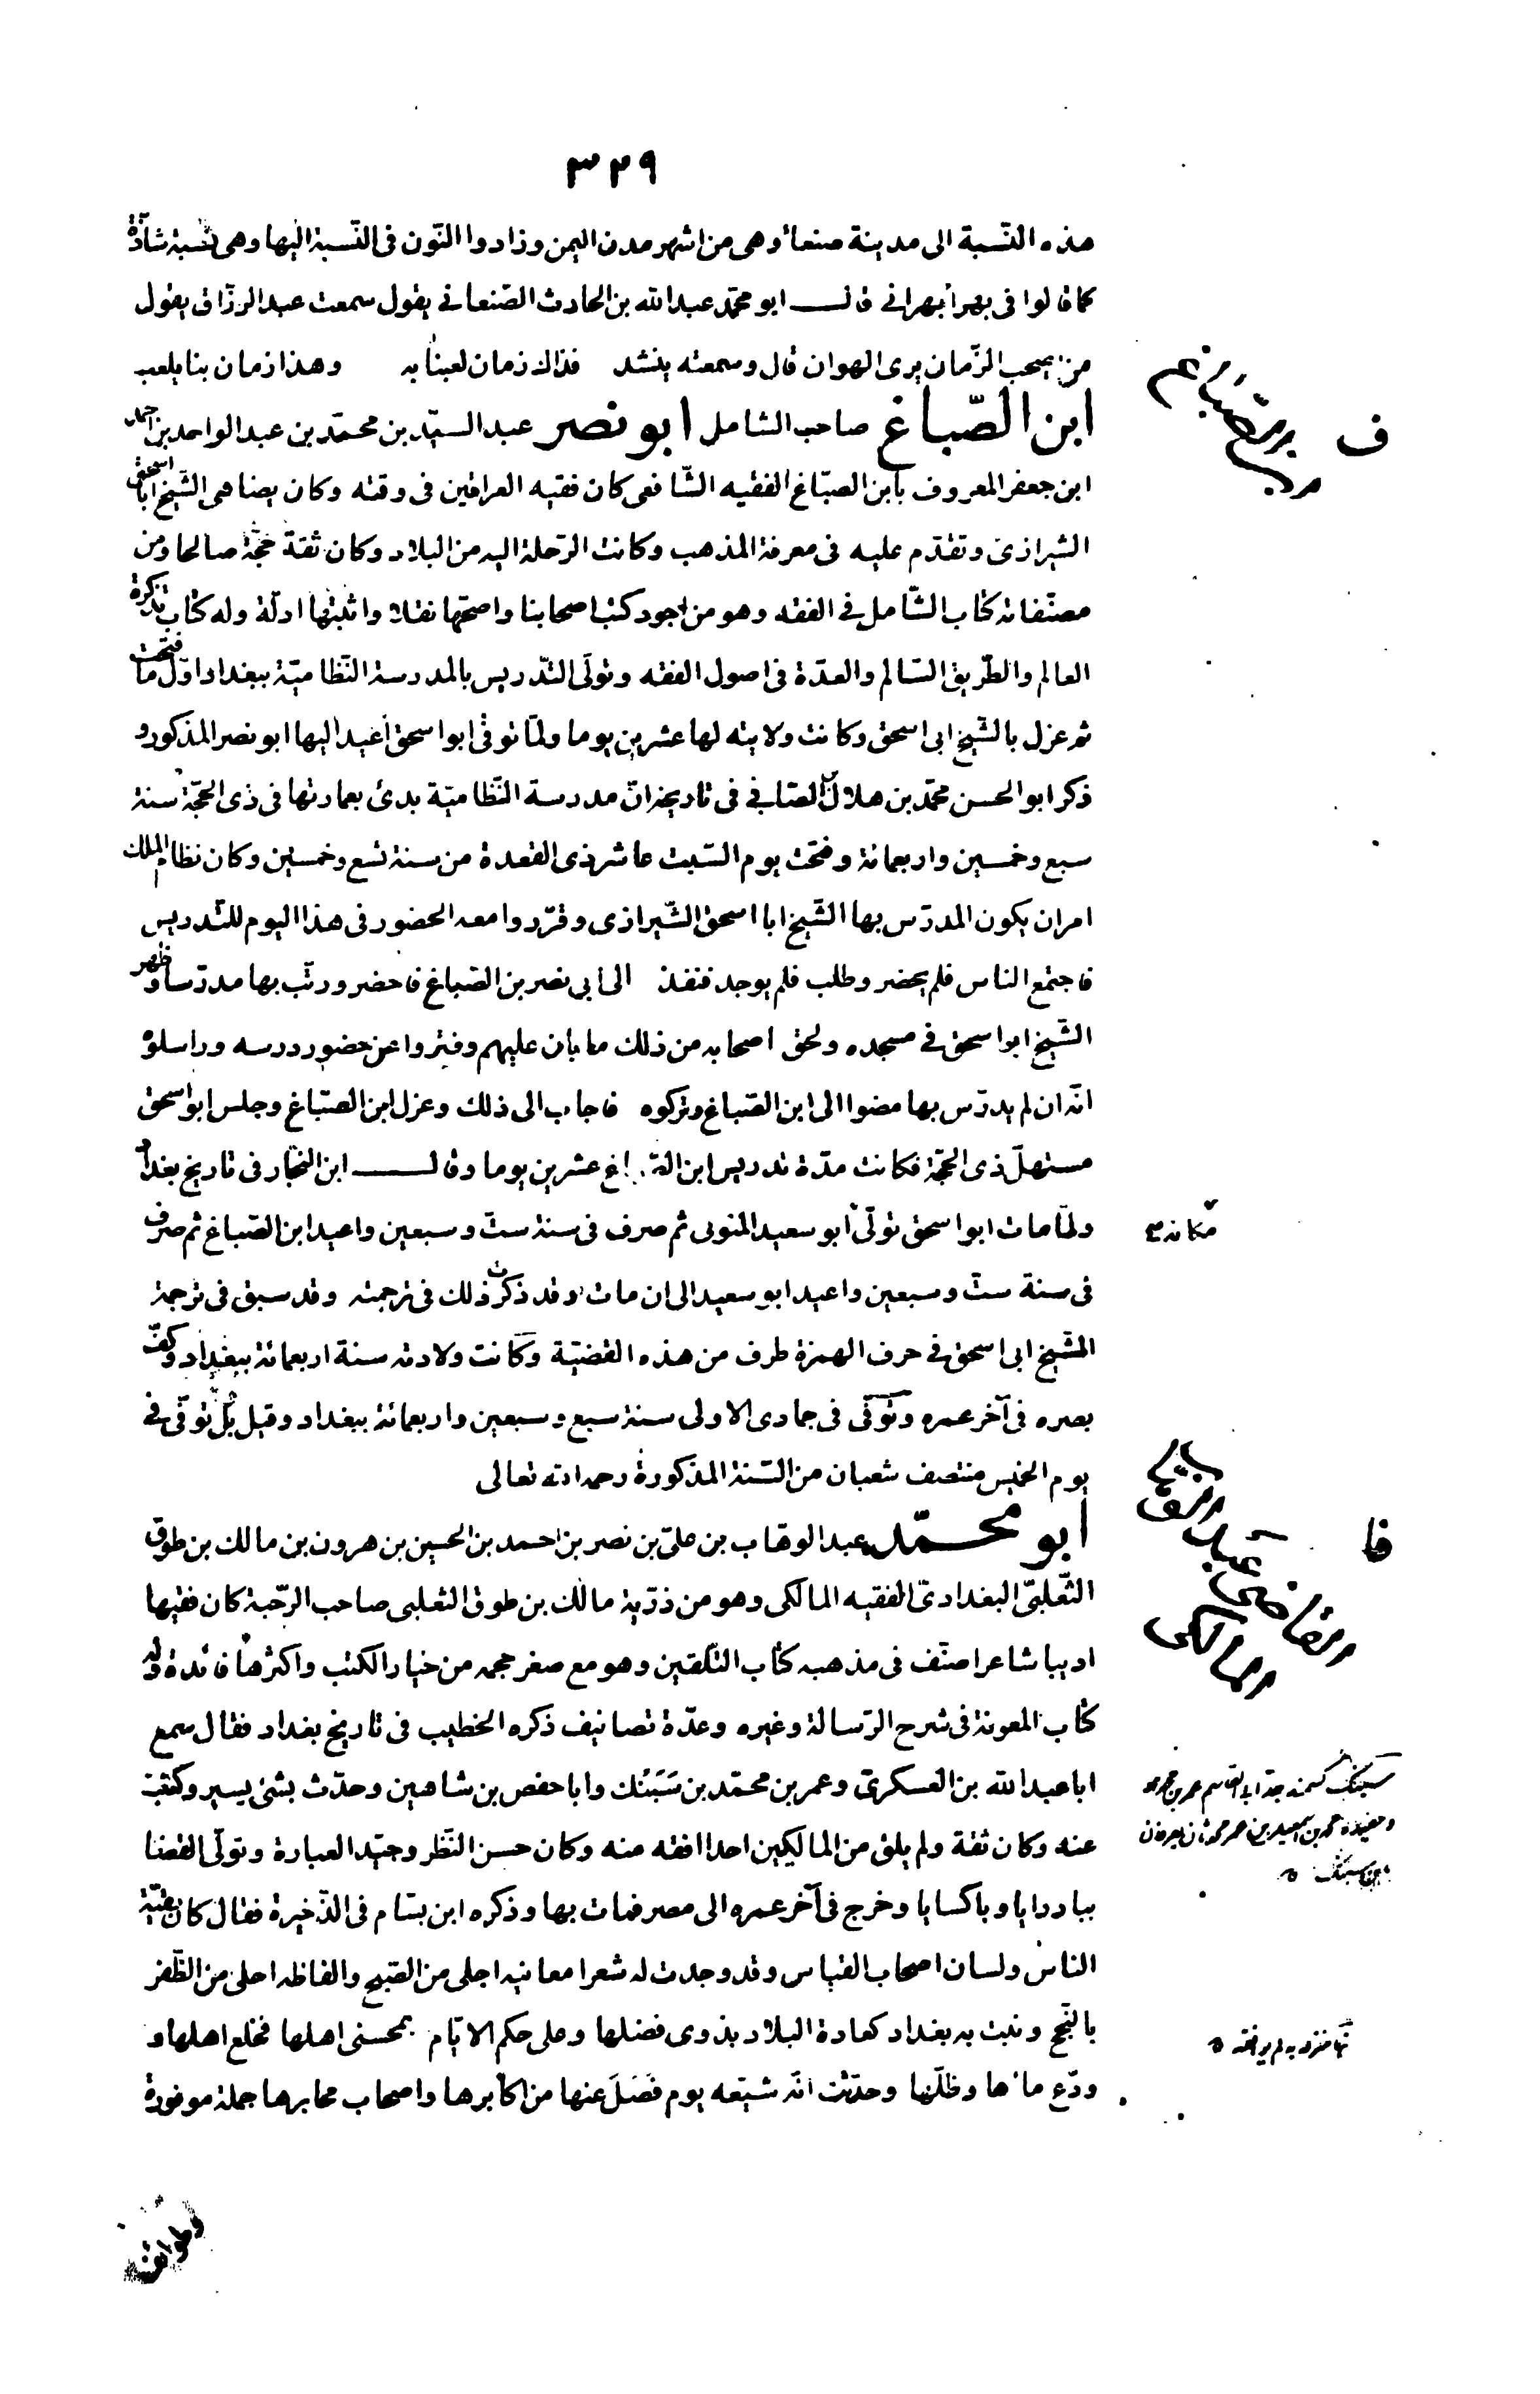 ٣٢٩
هذه النّسبة الى مدينة صنعاء وهى من اشهر مدن اليمن وزادوا النّون فى النّسبة اليها وهى نسبة شاذّة
كما قالوا فى بهراء بهرانى قال ابو محمّد عبدالله بن الحارث الصّنعانى يقول سمعت عبدالرزّاق يقول
من يصحب الزّمان يرى الهوان قال وسمعته ينشد فذاك زمان لعبنا به وهذا زمان بنا يلعب
ابن الصّباغ صاحب الشامل ابو نصر عبد السيّد بن محمّد بن عبد الواحد بن احمد
ابن جعفر المعروف بابن الصبّاغ الفقيه الشّافعى كان فقيه العراقين فى وقته وكان يضاهى الشّيخ ابا اسحق
الشيرازى وتقدّم عليه فى معرفة المذهب وكانت الرّحلة اليه من البلاد وكان ثقة حجّة صالحا ومن
مصنّفاته كتاب الشّامل فى الفقه وهو من اجود كتب اصحابنا واصحّها نقلا واثبتها ادلّة وله كتاب تذكرة
العالم والطّريق السّالم والعدّة فى اصول الفقه وتولّى التّدريس بالمدرسة النّظاميّة ببغداد اوّل ما فتحت
ثم عزل بالشّيخ ابى اسحق وكانت ولايته لها عشرين يوما ولمّا توفى ابو اسحق اعيد اليها ابو نصر المذكور و
ذكر ابو الحسن محمّد بن هلال بن الصّابى فى تاريخه انّ مدرسة النّظاميّة بدئ بعمارتها فى ذى الحجّة سنة
سبع وخمسين واربعمائة وفتحت يوم السّبت عاشر ذى القعدة من سنة تسع وخمسين وكان نظام الملك
امر ان يكون المدرّس بها الشّيخ ابا اسحق الشّيرازى وقرّروا معه الحضور فى هذا اليوم للتّدريس
فاجتمع الناس فلم يحضر وطلب فلم يوجد فنفذ الى ابى نصر بن الصّباغ فاحضر ورتّب بها مدرّسا وظهر
الشّيخ ابو اسحق فى مسجده ولحق اصحابه من ذلك ما بان عليهم وفتروا عن حضور درسه وراسلوه
انّه ان لم يدرّس بها مضوا الى ابن الصّباغ وتركوه فاجاب الى ذلك وعزل ابن الصبّاغ وجلس ابو اسحق
مستهلّ ذى الحجّة فكانت مدّة تدريس ابن الصّباغ عشرين يوما وقال ابن النجّار فى تاريخ بغداد
ولمّا مات ابو اسحق تولّى ابو سعيد المتولى ثم صرف فى سنة ستّ وسبعين واعيد ابن الصّباغ ثم صرف
مكانه
فى سنة ستّ وسبعين واعيد ابو سعيد الى ان مات وقد ذكرت ذلك فى ترجمته وقد سبق فى ترجمة
الشّيخ ابى اسحق فى حرف الهمزة طرف من هذه القضيّة وكانت ولادته سنة اربعمائة ببغداد وكفّ
بصره فى آخر عمره وتوفّى فى جمادى الاولى سنة سبع وسبعين واربعمائة ببغداد وقيل بل توفّى فى
يوم الخميس منتصف شعبان من السّنة المذكورة رحمه الله تعالى
ابو محمّد عبد الوهّاب بن علىّ بن نصر بن احمد بن الحسين بن هرون بن مالك بن طوق
الثّعلبىّ البغدادىّ الفقيه المالكى وهو من ذرّية مالك بن طوق الثعلبى صاحب الرّحبة كان فقيها
اديبا شاعرا صنّف فى مذهبه كتاب التّلقين وهو مع صغر حجمه من خيار الكتب واكثرها فائدة وله
كتاب المعونة فى شرح الرّسالة وغيره وعدّة تصانيف ذكره الخطيب فى تاريخ بغداد فقال سمع
ابا عبدالله بن العسكرىّ وعمر بن محمّد بن سَبَنْك وابا حفص بن شاهين وحدّث بشئ يسير وكتبت
عنه وكان ثقة ولم يلق من المالكيين احدا افقه منه وكان حسن النّظر وجيّد العبارة وتولّى القضا
ببادرايا وباكسايا وخرج فى آخر عمره الى مصر فمات بها وذكره ابن بسّام فى الذّخيرة فقال كان بقيّة
الناس ولسان اصحاب القياس وقد وجدت له شعرا معانيه اجلى من الصّبح والفاظه احلى من الظّفر
بالنّجح ونبت به بغداد كعادة البلاد بذوى فضلها وعلى حكم الايّام بمحسنى اهلها فخلع اهلها و
ودّع ماءها وظلّها وحدّثت انّه شيّعه يوم فصَلَ عنها من اكابرها واصحاب محابرها جملة موفورة
ف
ابن الصّباغ
فا
القاضى عبد الوهّاب
المالكى
وطوائف